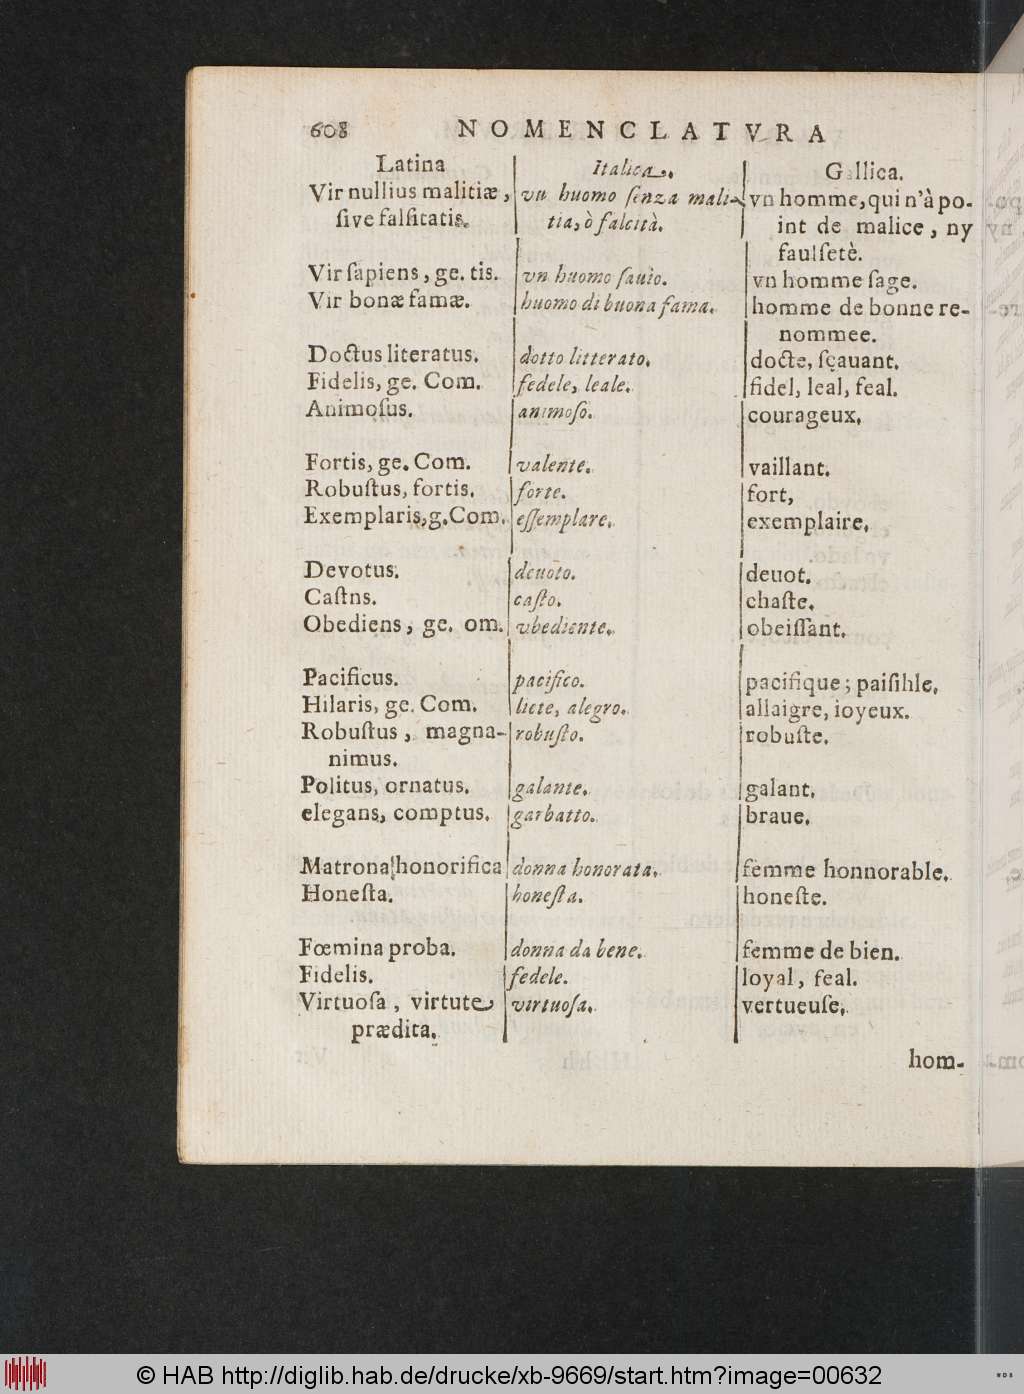 608 NOMENCLATVRA
Latina
Vir nullius malitiæ,
ſive falſitatis.
Vir ſapiens, ge. tis.
Vir bonæ famæ.
Doctus literatus.
Fidelis, ge. Com.
Animoſus.
Fortis, ge. Com.
Robuſtus, fortis.
Exemplaris, g. Com.
Devotus.
Caſtns.
Obediens, ge. om.
Pacificus.
Hilaris, ge. Com.
Robuſtus, magna-
nimus.
Politus, ornatus.
elegans, comptus.
Matrona honorifica
Honeſta.
Fœmina proba.
Fidelis.
Virtuoſa, virtute
prædita.
Italica.
vn huomo ſenza mali-
tia, ò falcità.
vn huomo ſauio.
huomo di buona fama.
dotto litterato.
fedele, leale.
animoſo.
valente.
forte.
eſſemplare.
deuoto.
caſto.
vbediente.
pacifico.
liete, alegro.
robuſto.
galante.
garbatto.
donna honorata.
honeſta.
donna da bene.
fedele.
virtuoſa.
Gallica.
vn homme, qui n'à po-
int de malice, ny
faulſetè.
vn homme ſage.
homme de bonne re-
nommee.
docte, ſçauant.
fidel, leal, feal.
courageux.
vaillant.
fort,
exemplaire.
deuot.
chaſte.
obeiſſant.
pacifique; paiſihle.
allaigre, ioyeux.
robuſte.
galant.
braue.
femme honnorable.
honeſte.
femme de bien.
loyal, feal.
vertueuſe.
hom-
© HAB http://diglib.hab.de/drucke/xb-9669/start.htm?image=00632